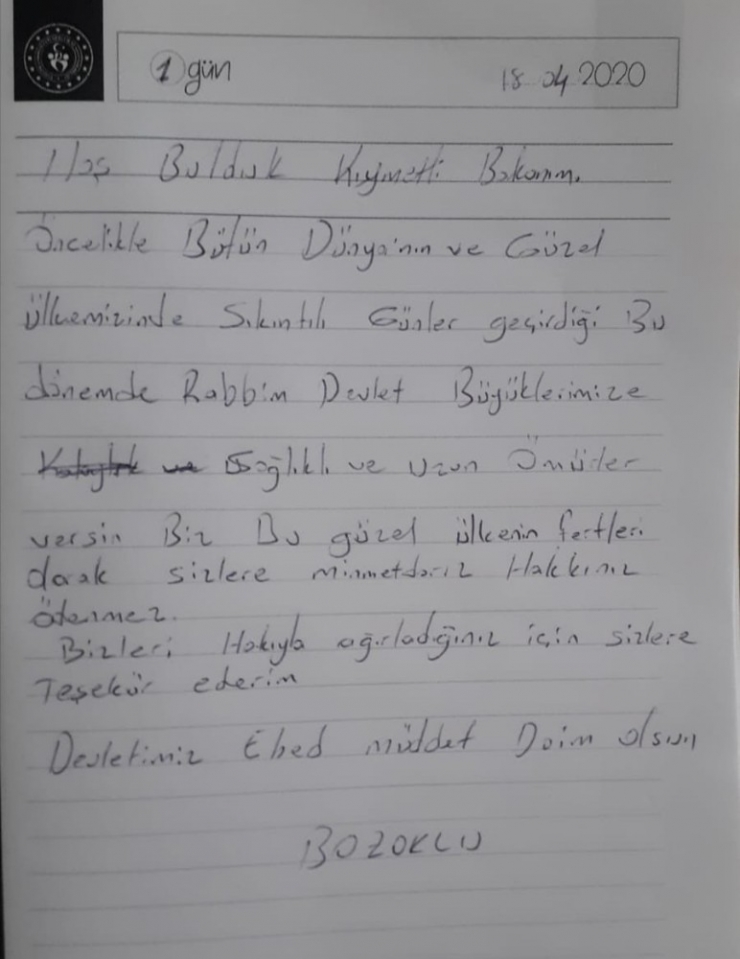 1 gün 18 04 2020
Hoş Bulduk Kıymetli Bakanım.
Öncelikle Bütün Dünya'nın ve Güzel
ülkemizinde Sıkıntılı Günler geçirdiği Bu
dönemde Rabbim Devlet Büyüklerimize
ve Sağlıklı ve Uzun Ömürler
versin Biz Bu güzel ülkenin fertleri
olarak sizlere minnetdarız Hakkınız
ödenmez.
Bizleri Hakıyla ağırladığınız için sizlere
Teşekür ederim
Devletimiz Ebed müddet Daim olsun
BOZOKLU